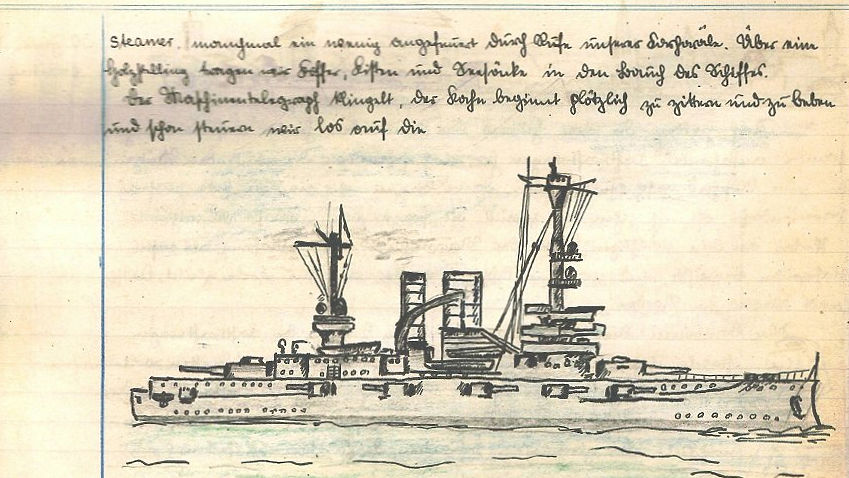 Steamer, manchmal ein wenig angefeuert durch Rufe unserer Korporäle. Über eine
Holzstelling tragen wir Koffer, Kisten und Seesäcke in den Bauch des Schiffes.
Der Maschinentelegraph klingelt, der Kahn beginnt plötzlich zu zittern und zu beben
und schon steuern wir los auf die